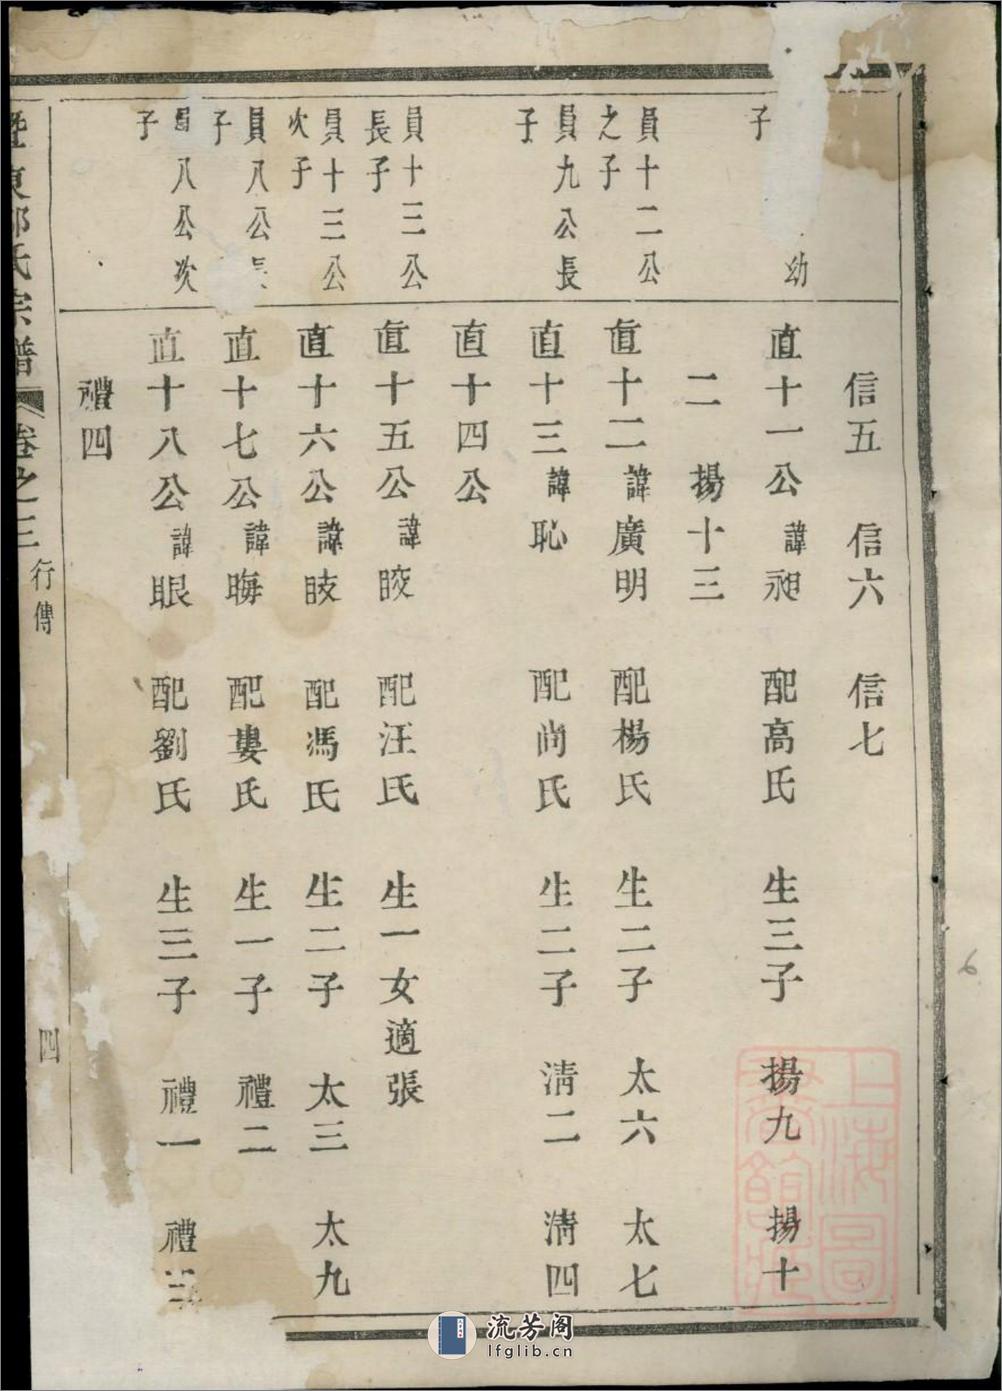 信五　信六　信七
幼
子
直十一公諱昶　配高氏　生三子　揚九　揚十
二　揚十三
員十二公
之子
直十二諱廣明　配楊氏　生二子　太六　太七
員九公長
子
直十三諱恥　配尚氏　生二子　淸二　淸四
直十四公
員十三公
長子
直十五公諱晈　配汪氏　生一女適張
員十三公
次子
直十六公諱𥅘　配馮氏　生二子　太三　太九
員八公長
子
直十七公諱晦　配婁氏　生一子　禮二
八公次
子
直十八公諱眼　配劉氏　生三子　禮一　禮三
禮四
東　氏宗譜　卷之三　行傳　四
上海圖書館藏
6
流芳阁
lfglib.cn